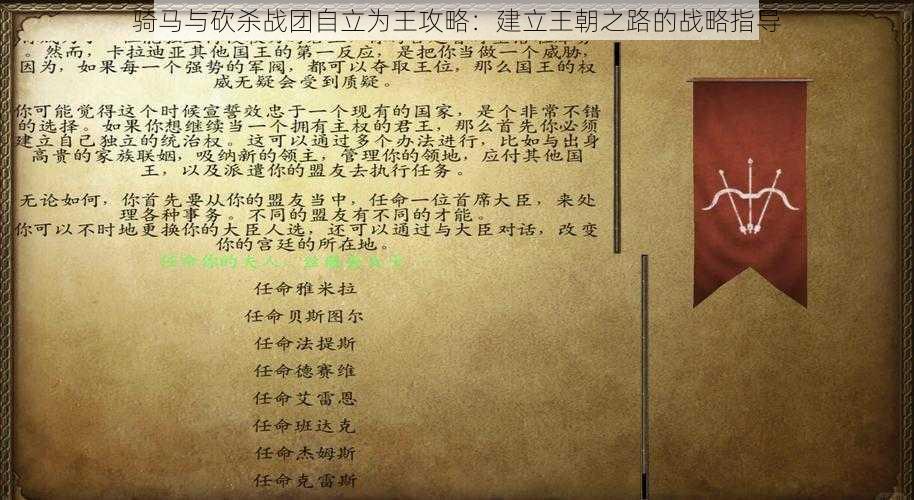 骑马与砍杀战团自立为王攻略：建立王朝之路的战略指导
。然而，卡拉迪亚其他国王的第一反应，是把你当做一个威胁，
因为，如果每一个强势的军阀，都可以夺取王位，那么国王的权
威无疑会受到质疑。
你可能觉得这个时候宣誓效忠于一个现有的国家，是个非常不错
的选择。如果你想继续当一个拥有主权的君王，那么首先你必须
建立自己独立的统治权。这可以通过多个办法进行，比如与出身
高贵的家族联姻，吸纳新的领主，管理你的领地，应付其他国
王，以及派遣你的盟友去执行任务。
无论如何，你首先要从你的盟友当中，任命一位首席大臣，来处
理各种事务。不同的盟友有不同的才能。
你可以不时地更换你的大臣人选，还可以通过与大臣对话，改变
你的宫廷的所在地。
任命你的夫人，
任命雅米拉
任命贝斯图尔
任命法提斯
任命德赛维
任命艾雷恩
任命班达克
任命杰姆斯
任命克雷斯